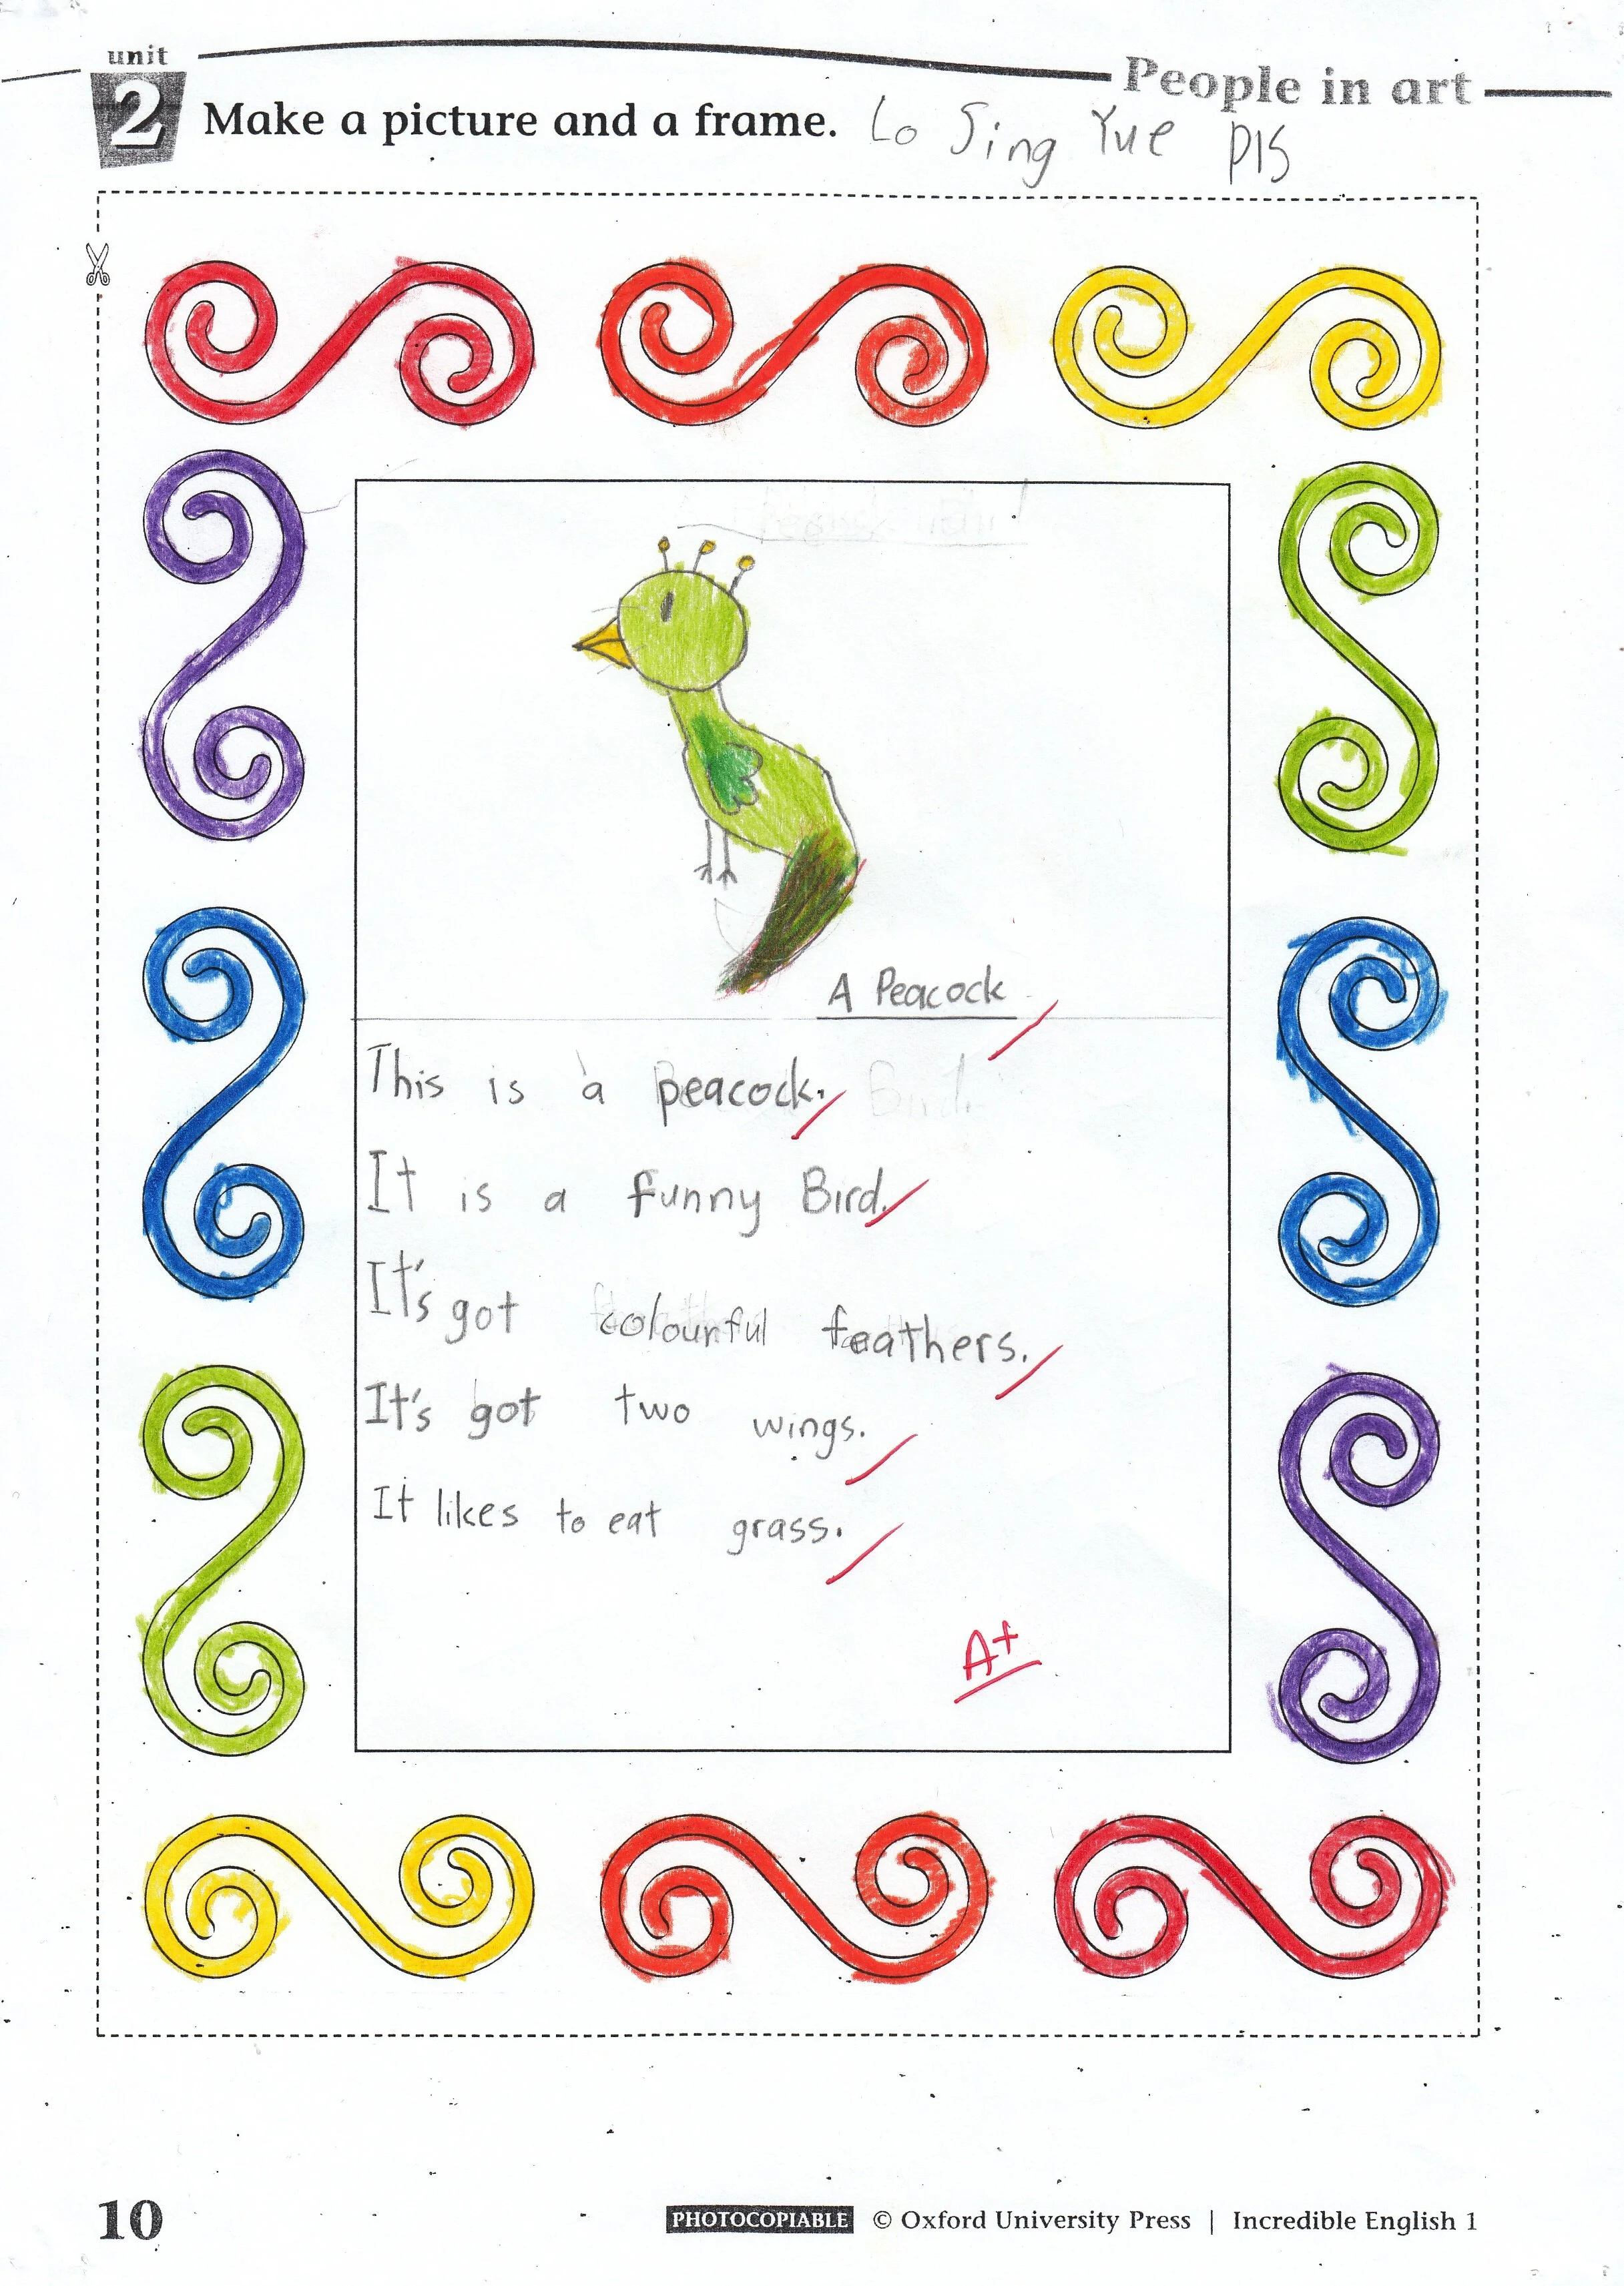 unit
2
People in art
Make a picture and a frame.
Lo Sing Yue P1S
A Peacock
This is a peacock.
It is a funny Bird.
It's got colourful feathers.
It's got two wings.
It likes to eat grass.
A+
10
PHOTOCOPIABLE © Oxford University Press | Incredible English 1